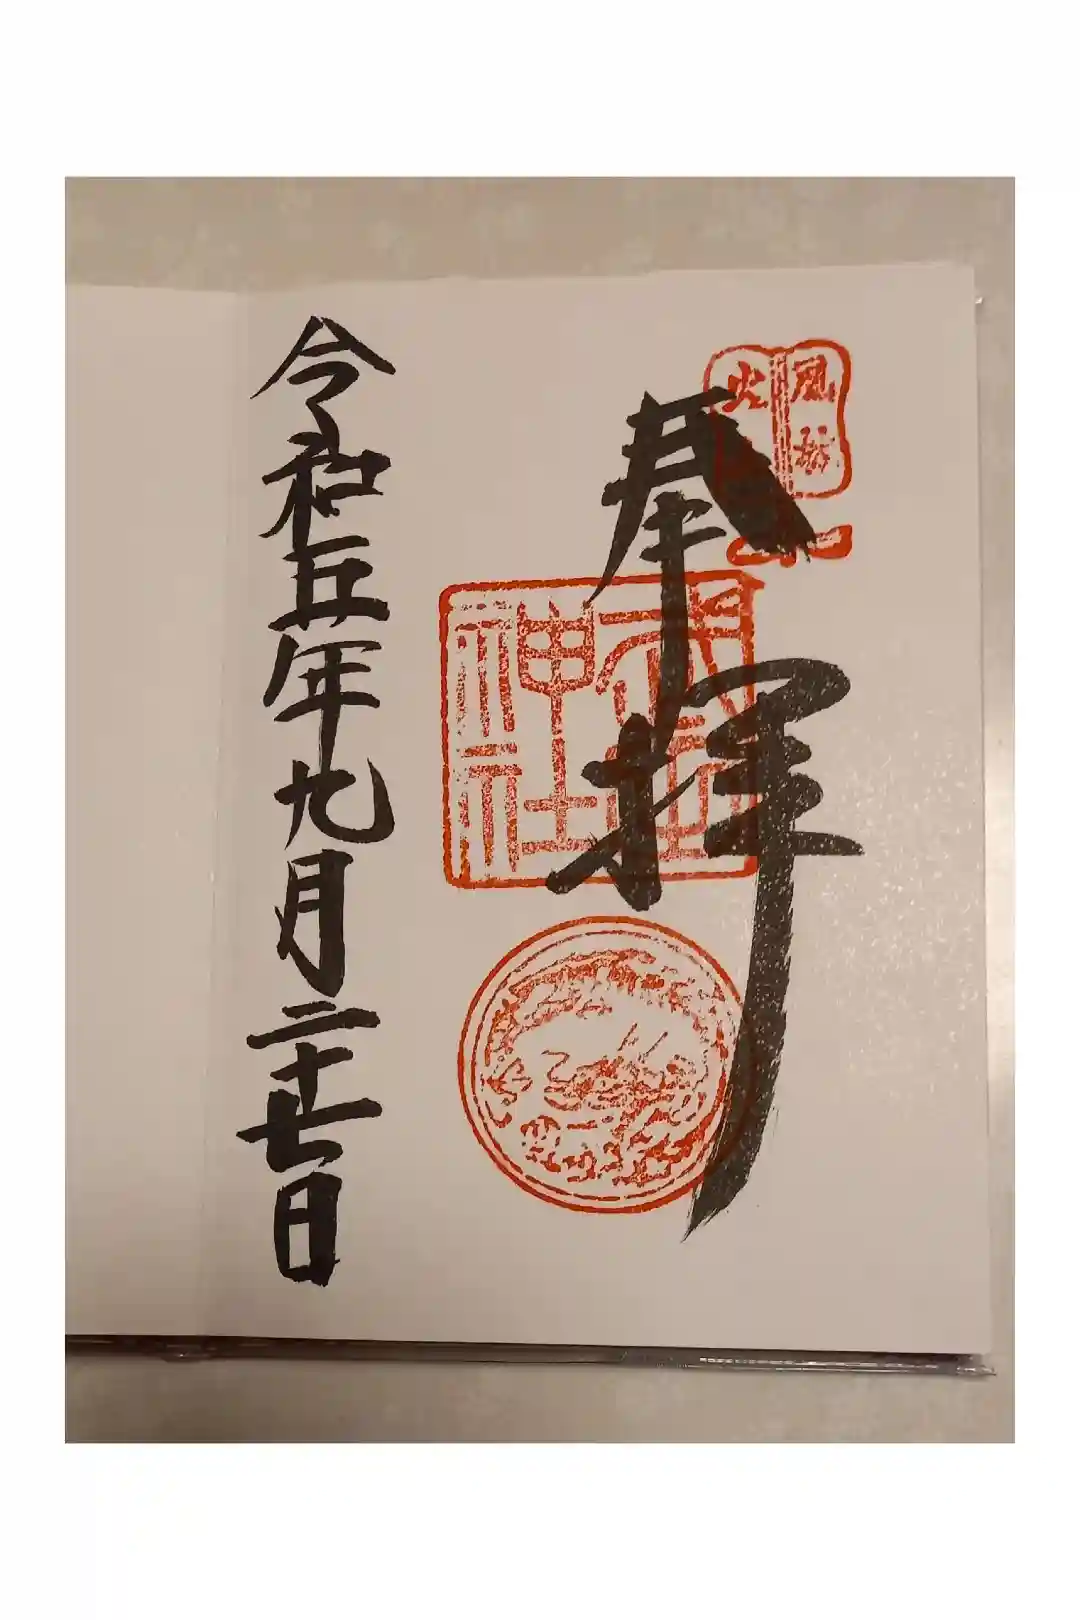 風林
火
奉拝
神社
令和五年九月二十七日